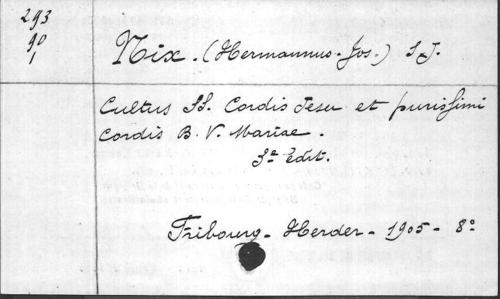 293
90
1
Nix. (Hermannus-Jos.) S.J.
Cultus SS. Cordis Jesu et purissimi
Cordis B. V. Mariae.
3ª edit.
Fribourg - Herder - 1905 - 8º